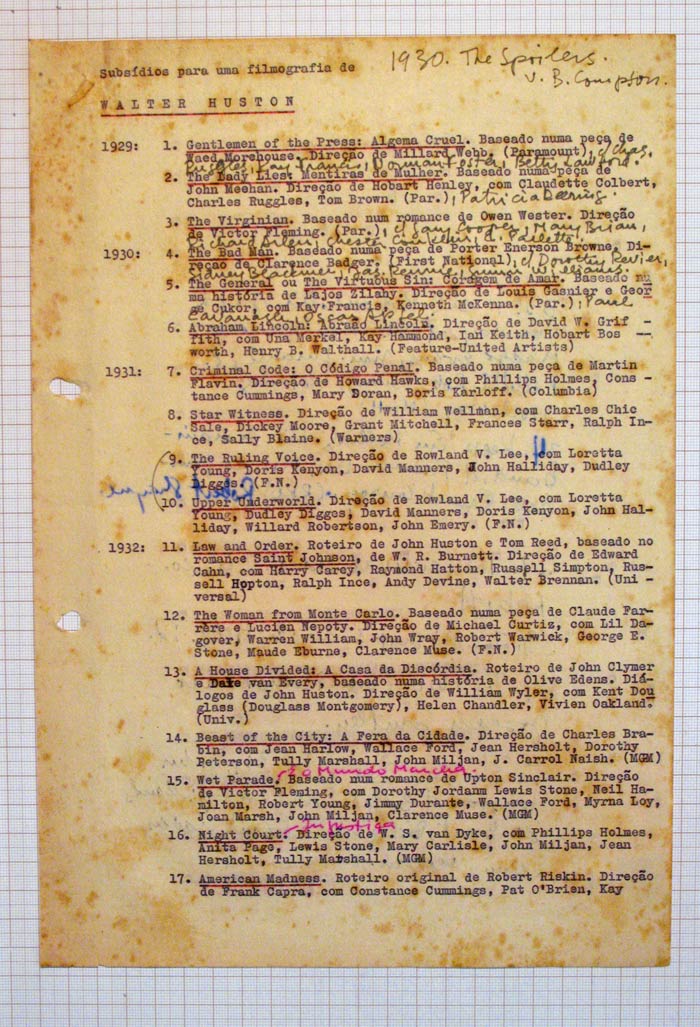 Subsídios para uma filmografia de
1930. The Spoilers.
v. B. Compson.
WALTER HUSTON
1929: 1. Gentlemen of the Press: Algema Cruel. Baseado numa peça de
Waed Morehouse. Direção de Millard Webb. (Paramount), c/ Chas.
Ruggles, Kay Francis, Norman Foster, Betty Lawford.
2. The Lady Lies: Mentiras de Mulher. Baseado numa peça de
John Meehan. Direção de Hobart Henley, com Claudette Colbert,
Charles Ruggles, Tom Brown. (Par.), Patricia Deering.
3. The Virginian. Baseado num romance de Owen Wester. Direção
de Victor Fleming. (Par.), c/ Gary Cooper, Mary Brian,
Richard Arlen, Chester Conklin, E. Pallette.
1930: 4. The Bad Man. Baseado numa peça de Porter Enerson Browne. Di-
reção de Clarence Badger. (First National), c/ Dorothy Revier,
Sidney Blackmer, Guinn Williams.
5. The General ou The Virtuous Sin: Coragem de Amar. Baseado nu
ma história de Lajos Zilahy. Direção de Louis Gasnier e Geor
ge Cukor, com Kay Francis, Kenneth McKenna. (Par.), Paul
Cavanagh, Oscar Apfel.
6. Abraham Lincoln: Abraão Lincoln. Direção de David W. Grif -
fith, com Una Merkel, Kay Hammond, Ian Keith, Hobart Bos --
worth, Henry B. Walthall. (Feature-United Artists)
1931: 7. Criminal Code: O Código Penal. Baseado numa peça de Martin
Flavin. Direção de Howard Hawks, com Phillips Holmes, Cons -
tance Cummings, Mary Doran, Boris Karloff. (Columbia)
8. Star Witness. Direção de William Wellman, com Charles Chic
Sale, Dickey Moore, Grant Mitchell, Frances Starr, Ralph In-
ce, Sally Blaine. (Warners)
9. The Ruling Voice. Direção de Rowland V. Lee, com Loretta
Young, Doris Kenyon, David Manners, John Halliday, Dudley
Digges. (F.N.)
10. Upper Underworld. Direção de Rowland V. Lee, com Loretta
Young, Dudley Digges, David Manners, Doris Kenyon, John Hal-
liday, Willard Robertson, John Emery. (F.N.)
1932: 11. Law and Order. Roteiro de John Huston e Tom Reed, baseado no
romance Saint Johnson, de W. R. Burnett. Direção de Edward
Cahn, com Harry Carey, Raymond Hatton, Russell Simpton, Rus-
sell Hopton, Ralph Ince, Andy Devine, Walter Brennan. (Uni -
versal)
12. The Woman from Monte Carlo. Baseado numa peça de Claude Far-
rère e Lucien Nepoty. Direção de Michael Curtiz, com Lil Da-
gover, Warren William, John Wray, Robert Warwick, George E.
Stone, Maude Eburne, Clarence Muse. (F.N.)
13. A House Divided: A Casa da Discórdia. Roteiro de John Clymer
e Dale van Every, baseado numa história de Olive Edens. Diá-
logos de John Huston. Direção de William Wyler, com Kent Dou
glass (Douglass Montgomery), Helen Chandler, Vivien Oakland.
(Univ.)
14. Beast of the City: A Fera da Cidade. Direção de Charles Bra-
bin, com Jean Harlow, Wallace Ford, Jean Hersholt, Dorothy
Peterson, Tully Marshall, John Miljan, J. Carrol Naish. (MGM)
O Mundo Marcha
15. Wet Parade. Baseado num romance de Upton Sinclair. Direção
de Victor Fleming, com Dorothy Jordanm Lewis Stone, Neil Ha-
milton, Robert Young, Jimmy Durante, Wallace Ford, Myrna Loy,
Joan Marsh, John Miljan, Clarence Muse. (MGM)
Injustiça
16. Night Court. Direção de W. S. van Dyke, com Phillips Holmes,
Anita Page, Lewis Stone, Mary Carlisle, John Miljan, Jean
Hersholt, Tully Marshall. (MGM)
17. American Madness. Roteiro original de Robert Riskin. Direção
de Frank Capra, com Constance Cummings, Pat O'Brien, Kay